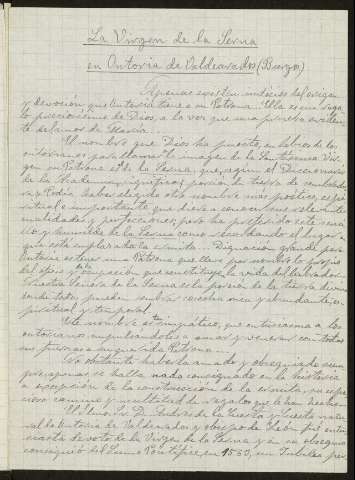 La Virgen de la Serna
en Ontoria de Valdearados (Burgos)
Apenas existen indicios del origen
y devoción que Ontoria tiene a su Patrona. Ella es un rega-
lo preciosísimo de Dios, a la vez que una prueba evidente
de amor de María.
El nombre que Dios ha puesto en labios de los
ontorianos para llamar la imagen de la Santísima Vir-
gen y Patrona es el de la Serna, que, según el Diccionario
de la Academia, significa: porción de tierra de sembradu-
ra. Podía haber sido otro nombre más poético, espi-
ritual e importante que diera a conocer sus
y perfecciones, pero ha preferido este senci-
llo y humilde de la Serna como recordando el lugar en
que está emplazada la ermita. Dignación grande para
Ontoria es tener una Patrona que lleve por nombre lo propio
del oficio y de la ocupación que constituye la vida del labrador.
Nuestra Señora de la Serna es la porción de la tierra divina
donde todos pueden sembrar y cosechar rica y abundante, es-
piritual y temporal.
Este nombre es simpático, que entusiasma a los
ontorianos, impulsándolos a amar y venerar con todas
sus fuerzas a su querida Patrona.
No obstante haberla amado y obsequiado siem-
pre, apenas se halla nada consignado en la historia
a excepción de la construcción de la ermita, su espa-
cioso camino y multitud de regalos que le han hecho.
El Ilmo. Sr. D. Andrés de la Cuesta y Cuesta natu-
ral de Ontoria de Valdearados y obispo de León fué entu-
siasta devoto de la Virgen de la Serna y en su obsequio
consiguió del Sumo Pontífice, en 1563, un Jubileo per-